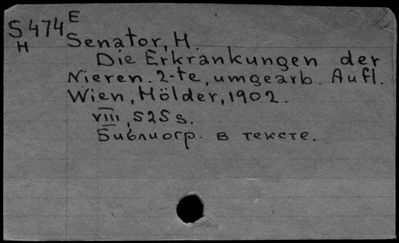 E
S474
H
Senator, H.
Die Erkrankungen der
Nieren. 2-te, umgearb. Aufl.
Wien, Hölder, 1902.
VIII, 525 s.
Библиогр. в тексте.